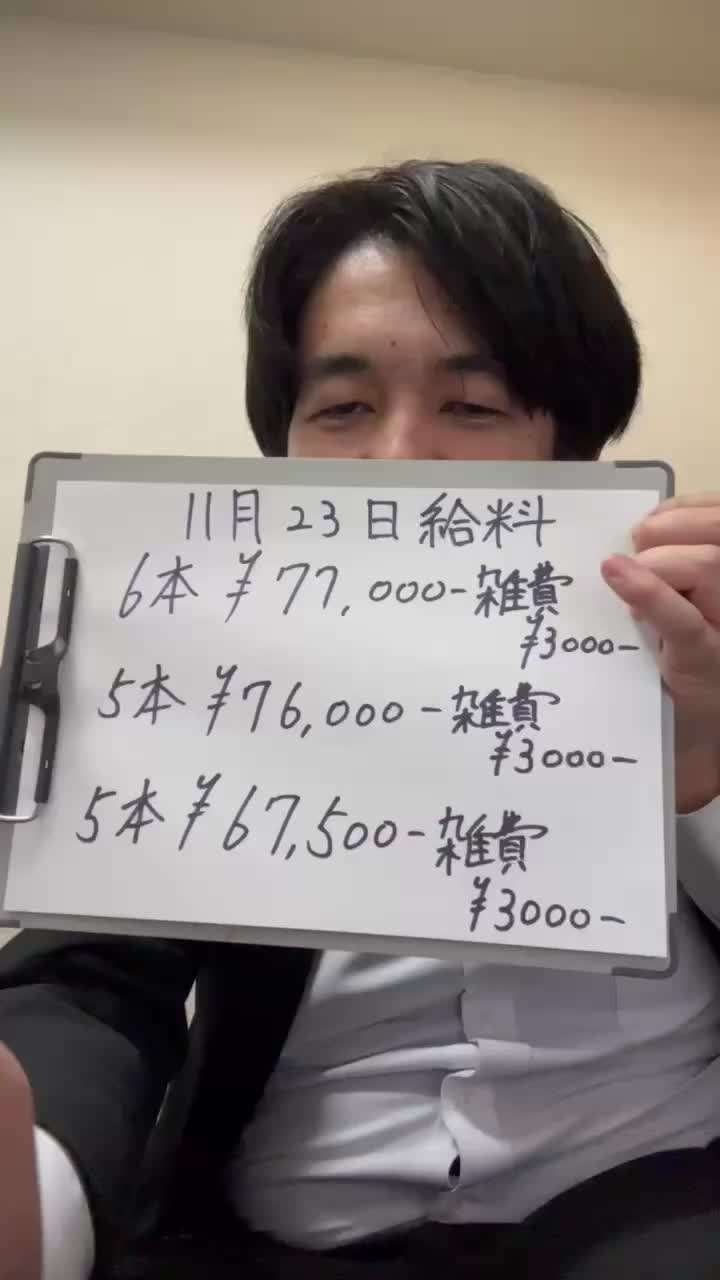 11月23日給料
6本 ¥77,000-雑費
¥3000-
5本 ¥76,000-雑費
¥3000-
5本 ¥67,500-雑費
¥3000-